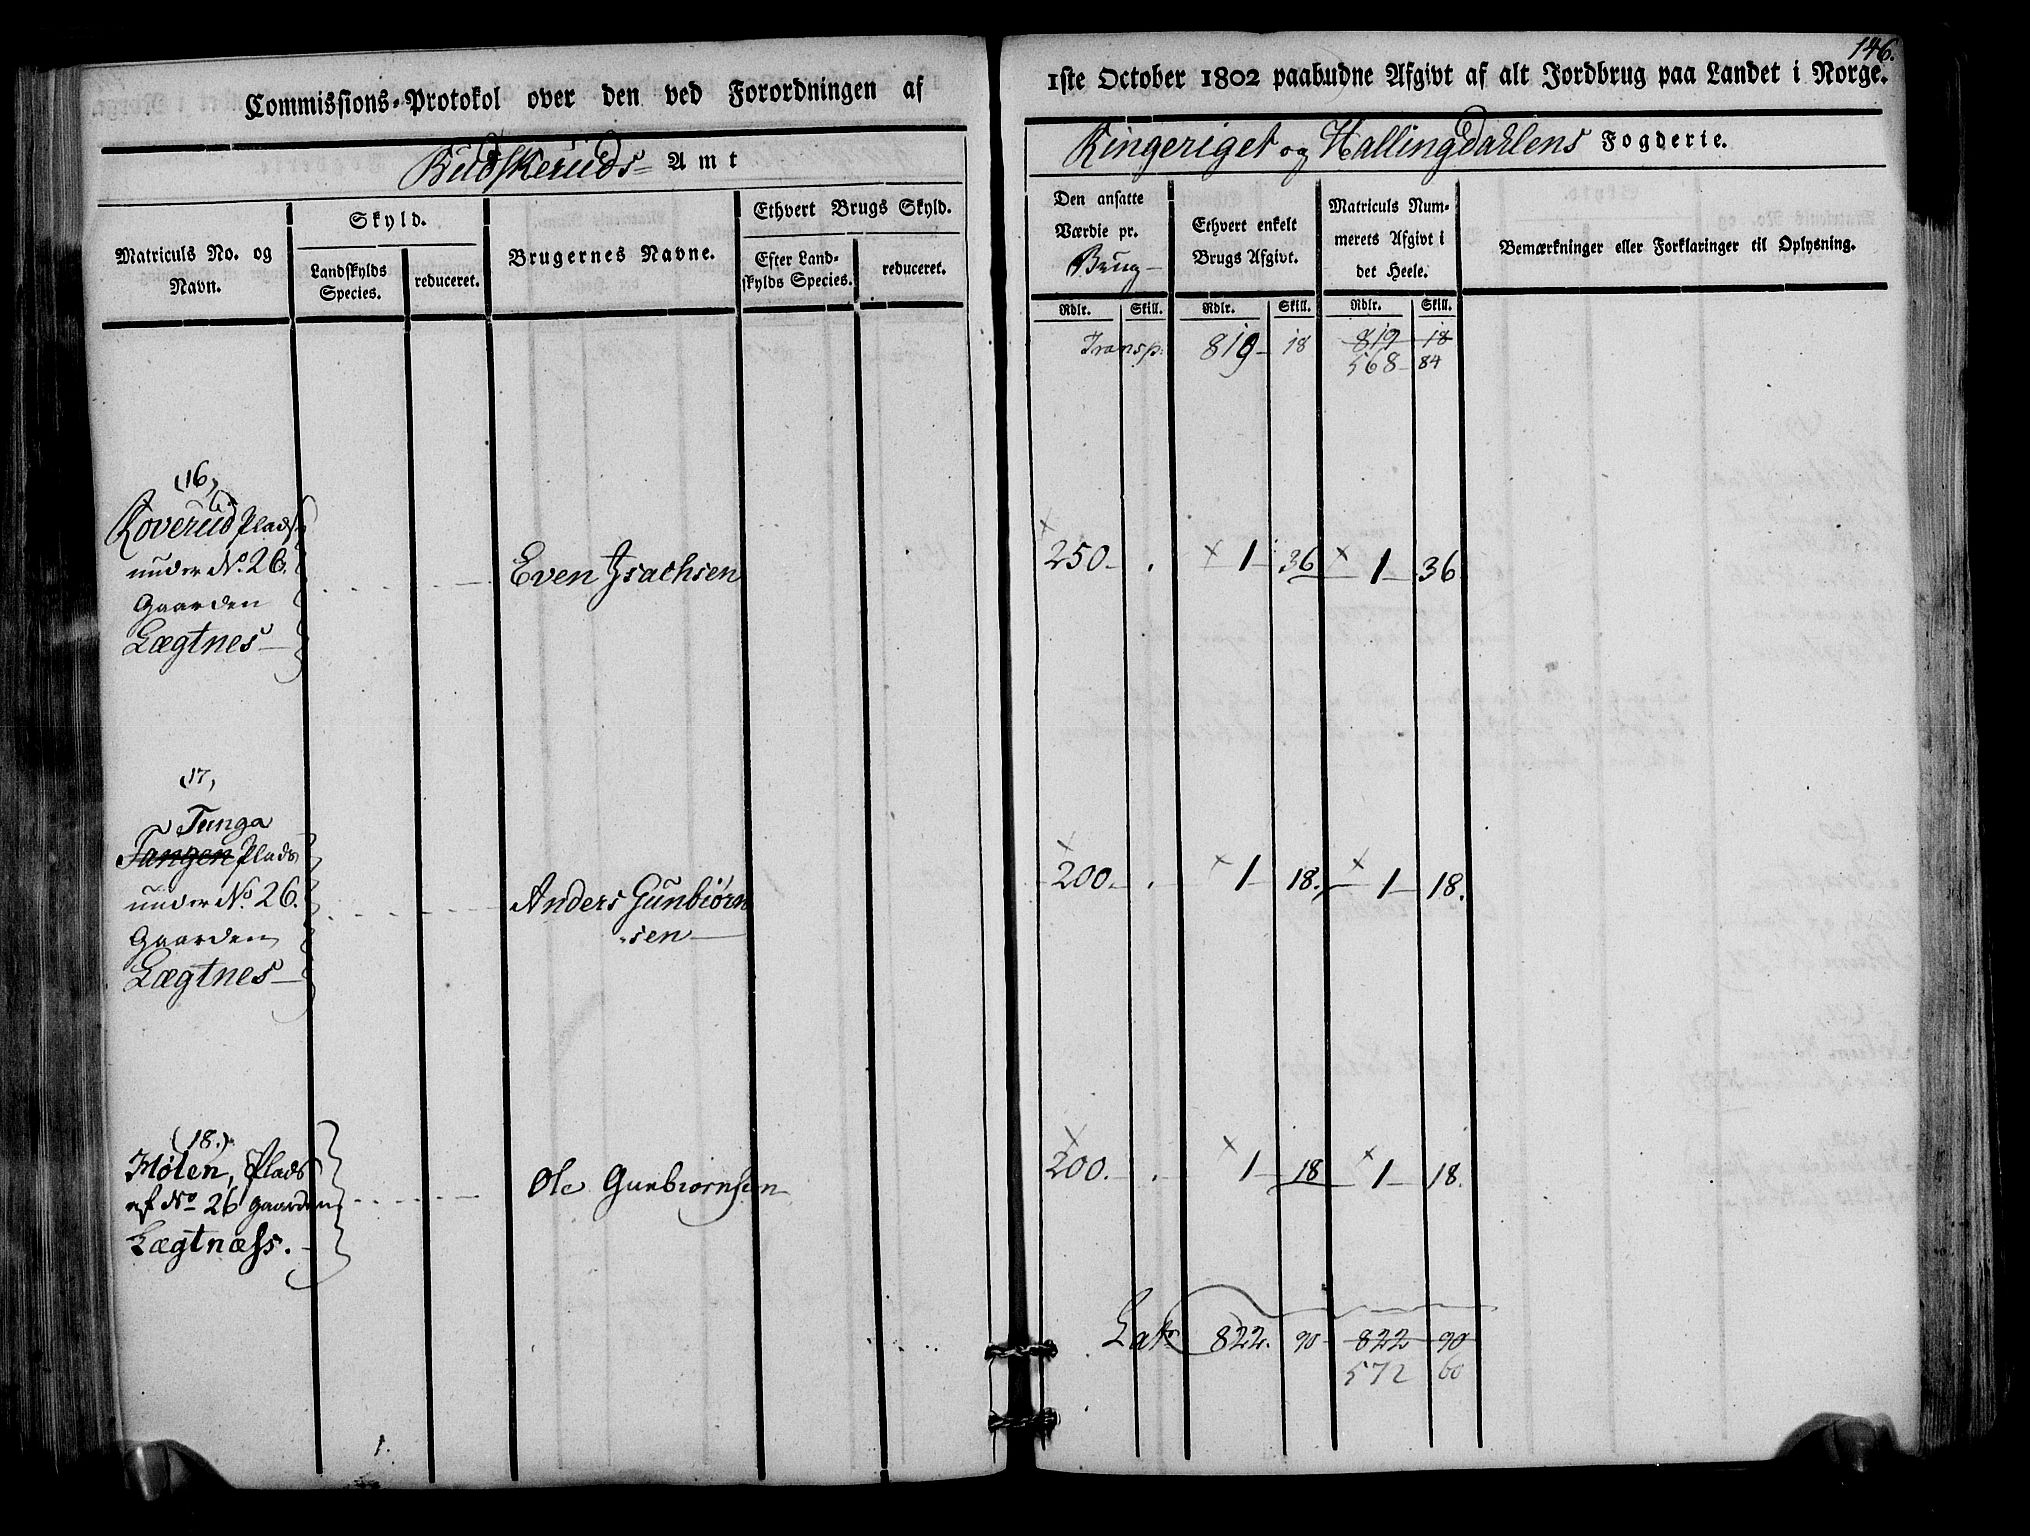 146.
Commissions-Protokol over den ved Forordningen af 1ste October 1802 paabudne Afgivt af alt Jordbrug paa Landet i Norge.
Budskeruds- Amt
Ringeriget og Hallingdahlens Fogderie.
Matriculs No. og Navn.
Skyld.
Landskylds Species.
reduceret.
Brugernes Navne.
Ethvert Brugs Skyld.
Efter Landskylds Species.
reduceret.
Den ansatte Værdie pr. Brug-
Ethvert enkelt Brugs Afgivt.
Matriculs Nummerets Afgivt i det Heele.
Bemærkninger eller Forklaringer til Oplysning.
Rdlr. Skill. Rdlr. Skill. Rdlr. Skill.
Transp: 819- 18 819 18
568- 84
(16,
Roverud Plads
under No. 26.
Gaarden
Lægtnes-
Even Isachsen
250. - . 1- 36 1- 36.
(17,
Tunga
Tangen Plads
under No. 26.
Gaarden
Lægtnes-
Anders Gunbiørn
sen-
200. - . 1- 18. 1- 18.
(18.)
Mølen, Plads
af No 26 gaarden
Lægtnæss.
Ole Gunbiørnsen
200. - . 1- 18 1- 18.
Lats 822. 90- 822 90
572 60
1.